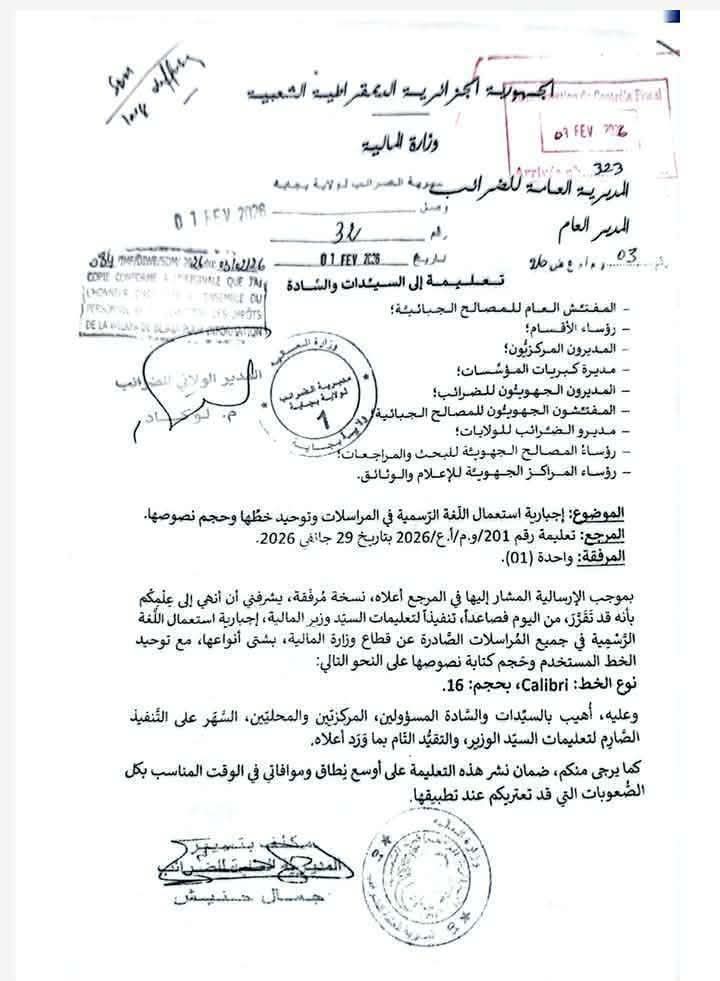 الجمهورية الجزائرية الديمقراطية الشعبية
وزارة المالية
03 FEV 2026
323
المديرية العامة للضرائب
مديرية الضرائب لولاية بجاية
المدير العام
وصل
01 FEV 2026
رقم 32
رقم 03
بتاريخ 01 FEV. 2026
COPIE CONFORME A L'ORIGINALE QUE J'AI
L'HONNEUR
ENSEMBLE DU
PERSONNEL
IMPÔTS
DE LA WILAYA DE BEJAIA POUR INFORMATION
تـعـلـيـمـة إلى السيّدات والسّادة
– المفتش العام للمصالح الجبائية؛
– رؤساء الأقسام؛
– المديرون المركزيّون؛
– مديرة كبريات المؤسّسات؛
– المديرون الجهويّون للضرائب؛
– المفتشون الجهويّون للمصالح الجبائية؛
– مديرو الضرائب للولايات؛
– رؤساءُ المصالح الجهويّة للبحث والمراجعات؛
– رؤساء المراكز الجهويّة للإعلام والوثائق.
المدير الولائي للضرائب
م. لوكـــاد
وزارة المالية
مديرية الضرائب
لولاية بجاية
1
الموضوع: إجبارية استعمال اللّغة الرّسمية في المراسلات وتوحيد خطّها وحجم نصوصها.
المرجع: تعليمة رقم 201/و.م/أ.ع/2026 بتاريخ 29 جانفي 2026.
المرفقة: واحدة (01).
بموجب الإرسالية المشار إليها في المرجع أعلاه، نسخة مُرفَقة، يشرفني أن أنهي إلى عِلْمِكُم
بأنه قد تَقَرَّرَ، من اليوم فصاعداً، تنفيذاً لتعليمات السيّد وزير المالية، إجبارية استعمال اللّغة
الرّسْمِية في جميع المُراسلات الصّادرة عن قطاع وزارة المالية، بشتى أنواعها، مع توحيد
الخط المستخدم وحَجم كتابة نصوصها على النحو التالي:
نوع الخط: Calibri، بحجم: 16.
وعليه، أُهيب بالسيّدات والسّادة المسؤولين، المركزيّين والمحليّين، السّهَر على التّنفيذ
الصّارِم لتعليمات السيّد الوزير، والتقيُّد التّام بما وَرَد أعلاه.
كما يرجى منكم، ضمان نشر هذه التعليمة على أوسع نِطاق وموافاتي في الوقت المناسب بكل
الصُّعوبات التي قد تعتريكم عند تطبيقها.
مكلف بتسيير
المديرية العامة للضرائب
جمال حنيش